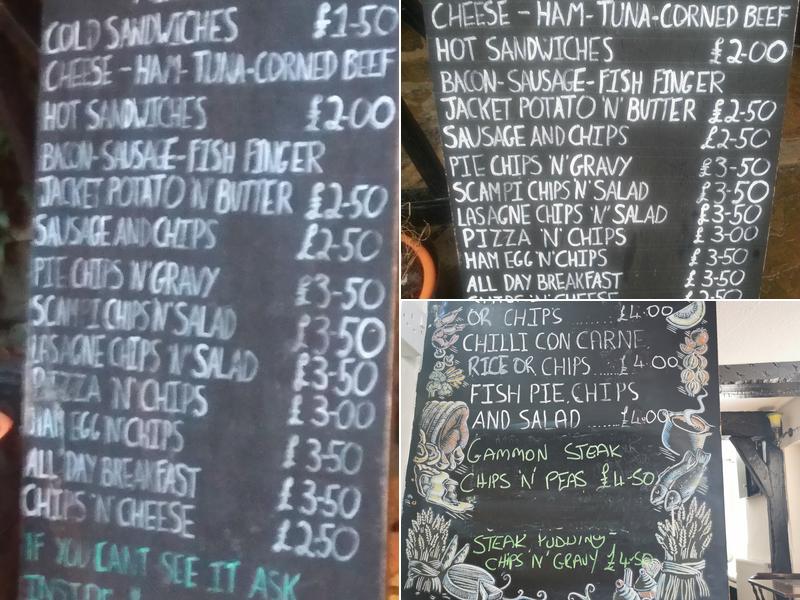 COLD SANDWICHES £1-50
CHEESE - HAM - TUNA - CORNED BEEF
HOT SANDWICHES £2-00
BACON - SAUSAGE - FISH FINGER
JACKET POTATO 'N' BUTTER £2-50
SAUSAGE AND CHIPS £2-50
PIE CHIPS 'N' GRAVY £3-50
SCAMPI CHIPS 'N' SALAD £3-50
LASAGNE CHIPS 'N' SALAD £3-50
PIZZA 'N' CHIPS £3-00
HAM EGG 'N' CHIPS £3-50
ALL DAY BREAKFAST £3-50
CHIPS 'N' CHEESE £2-50
IF YOU CANT SEE IT ASK
INSIDE !!
CHEESE - HAM - TUNA - CORNED BEEF
HOT SANDWICHES £2-00
BACON - SAUSAGE - FISH FINGER
JACKET POTATO 'N' BUTTER £2-50
SAUSAGE AND CHIPS £2-50
PIE CHIPS 'N' GRAVY £3-50
SCAMPI CHIPS 'N' SALAD £3-50
LASAGNE CHIPS 'N' SALAD £3-50
PIZZA 'N' CHIPS £3-00
HAM EGG 'N' CHIPS £3-50
ALL DAY BREAKFAST £3-50
CHIPS 'N' CHEESE £2-50
OR CHIPS ........ £4.00
CHILLI CON CARNE
RICE OR CHIPS .... £4.00
FISH PIE, CHIPS
AND SALAD ...... £4.00
GAMMON STEAK
CHIPS 'N' PEAS £4-50
STEAK PUDDING
CHIPS 'N' GRAVY £4-50